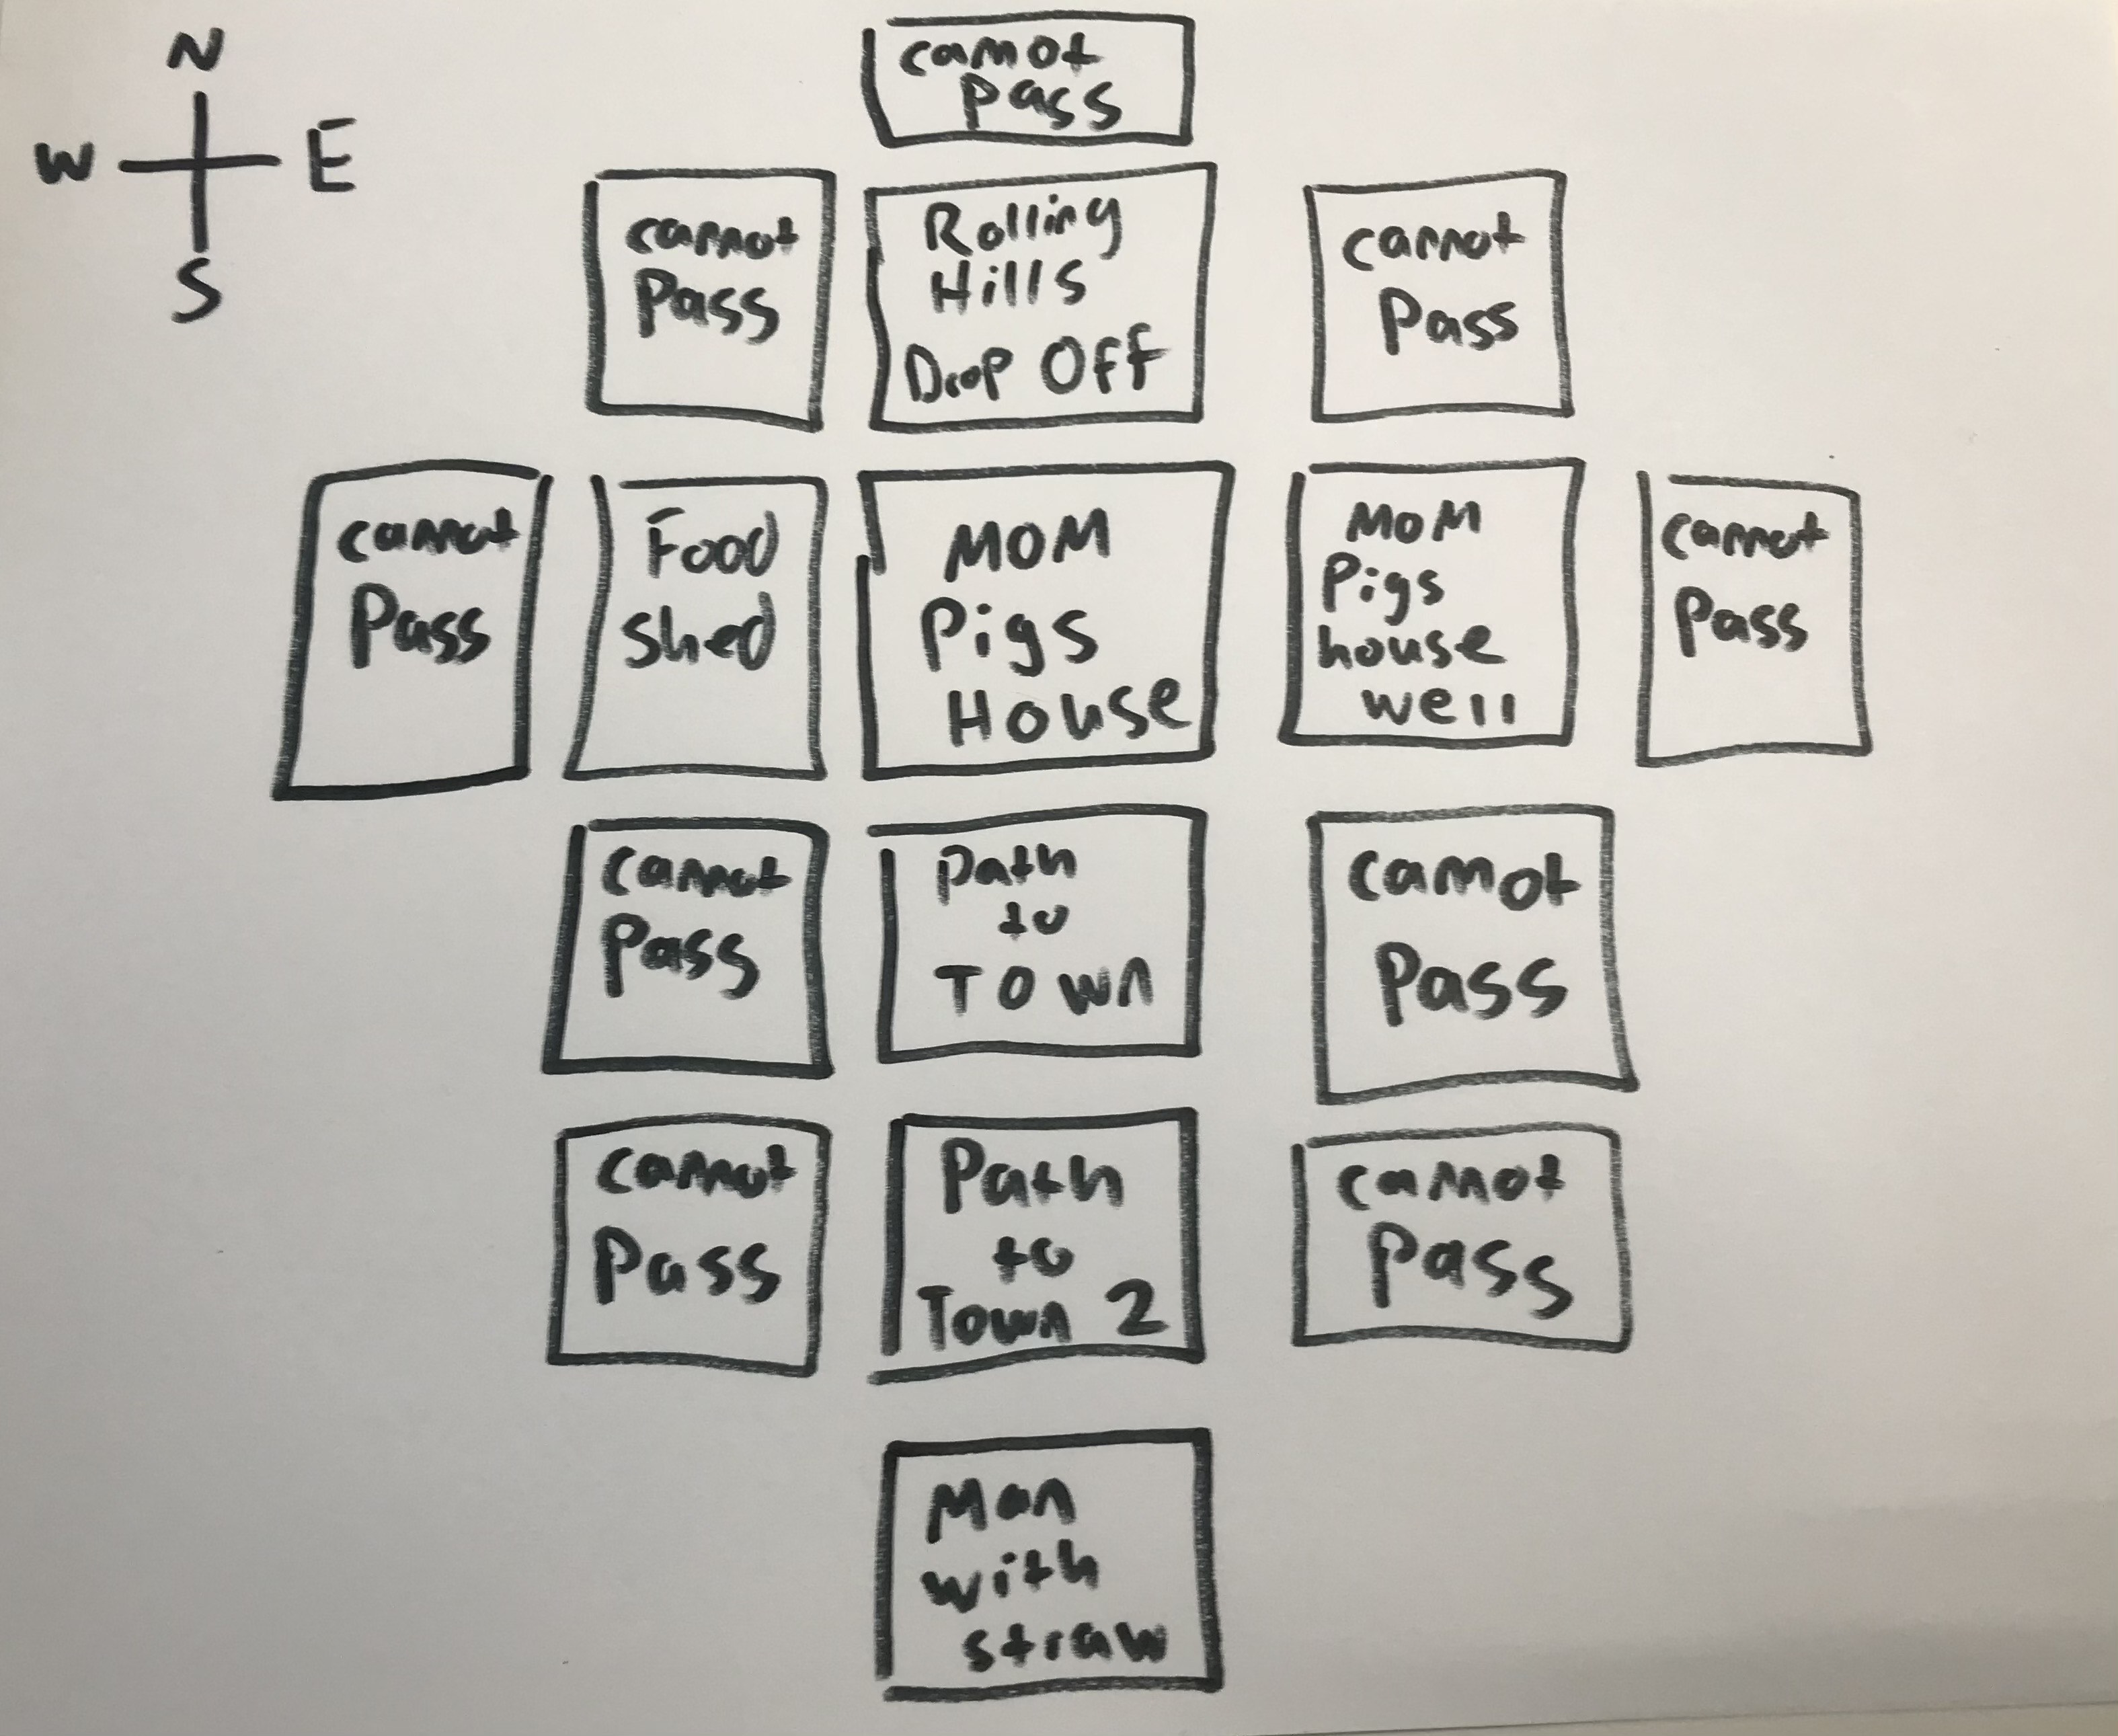 N
W E
S
cannot
pass
cannot
Pass
Rolling
Hills
Drop Off
cannot
Pass
cannot
Pass
Food
shed
MOM
Pigs
House
MOM
Pigs
house
well
cannot
Pass
cannot
Pass
path
to
TOWN
cannot
Pass
cannot
Pass
Path
to
Town 2
cannot
Pass
Man
with
straw